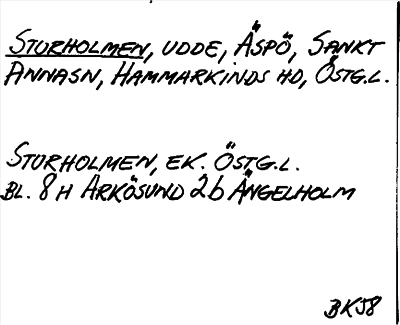 STURHOLMEN, UDDE, ÄSPÖ, SANKT
ANNASN, HAMMARKINDS HD, ÖSTG.L.
STURHOLMEN, EK. ÖSTG.L.
BL. 8H ARKÖSUND 2b ÄNGELHOLM
BKJ8